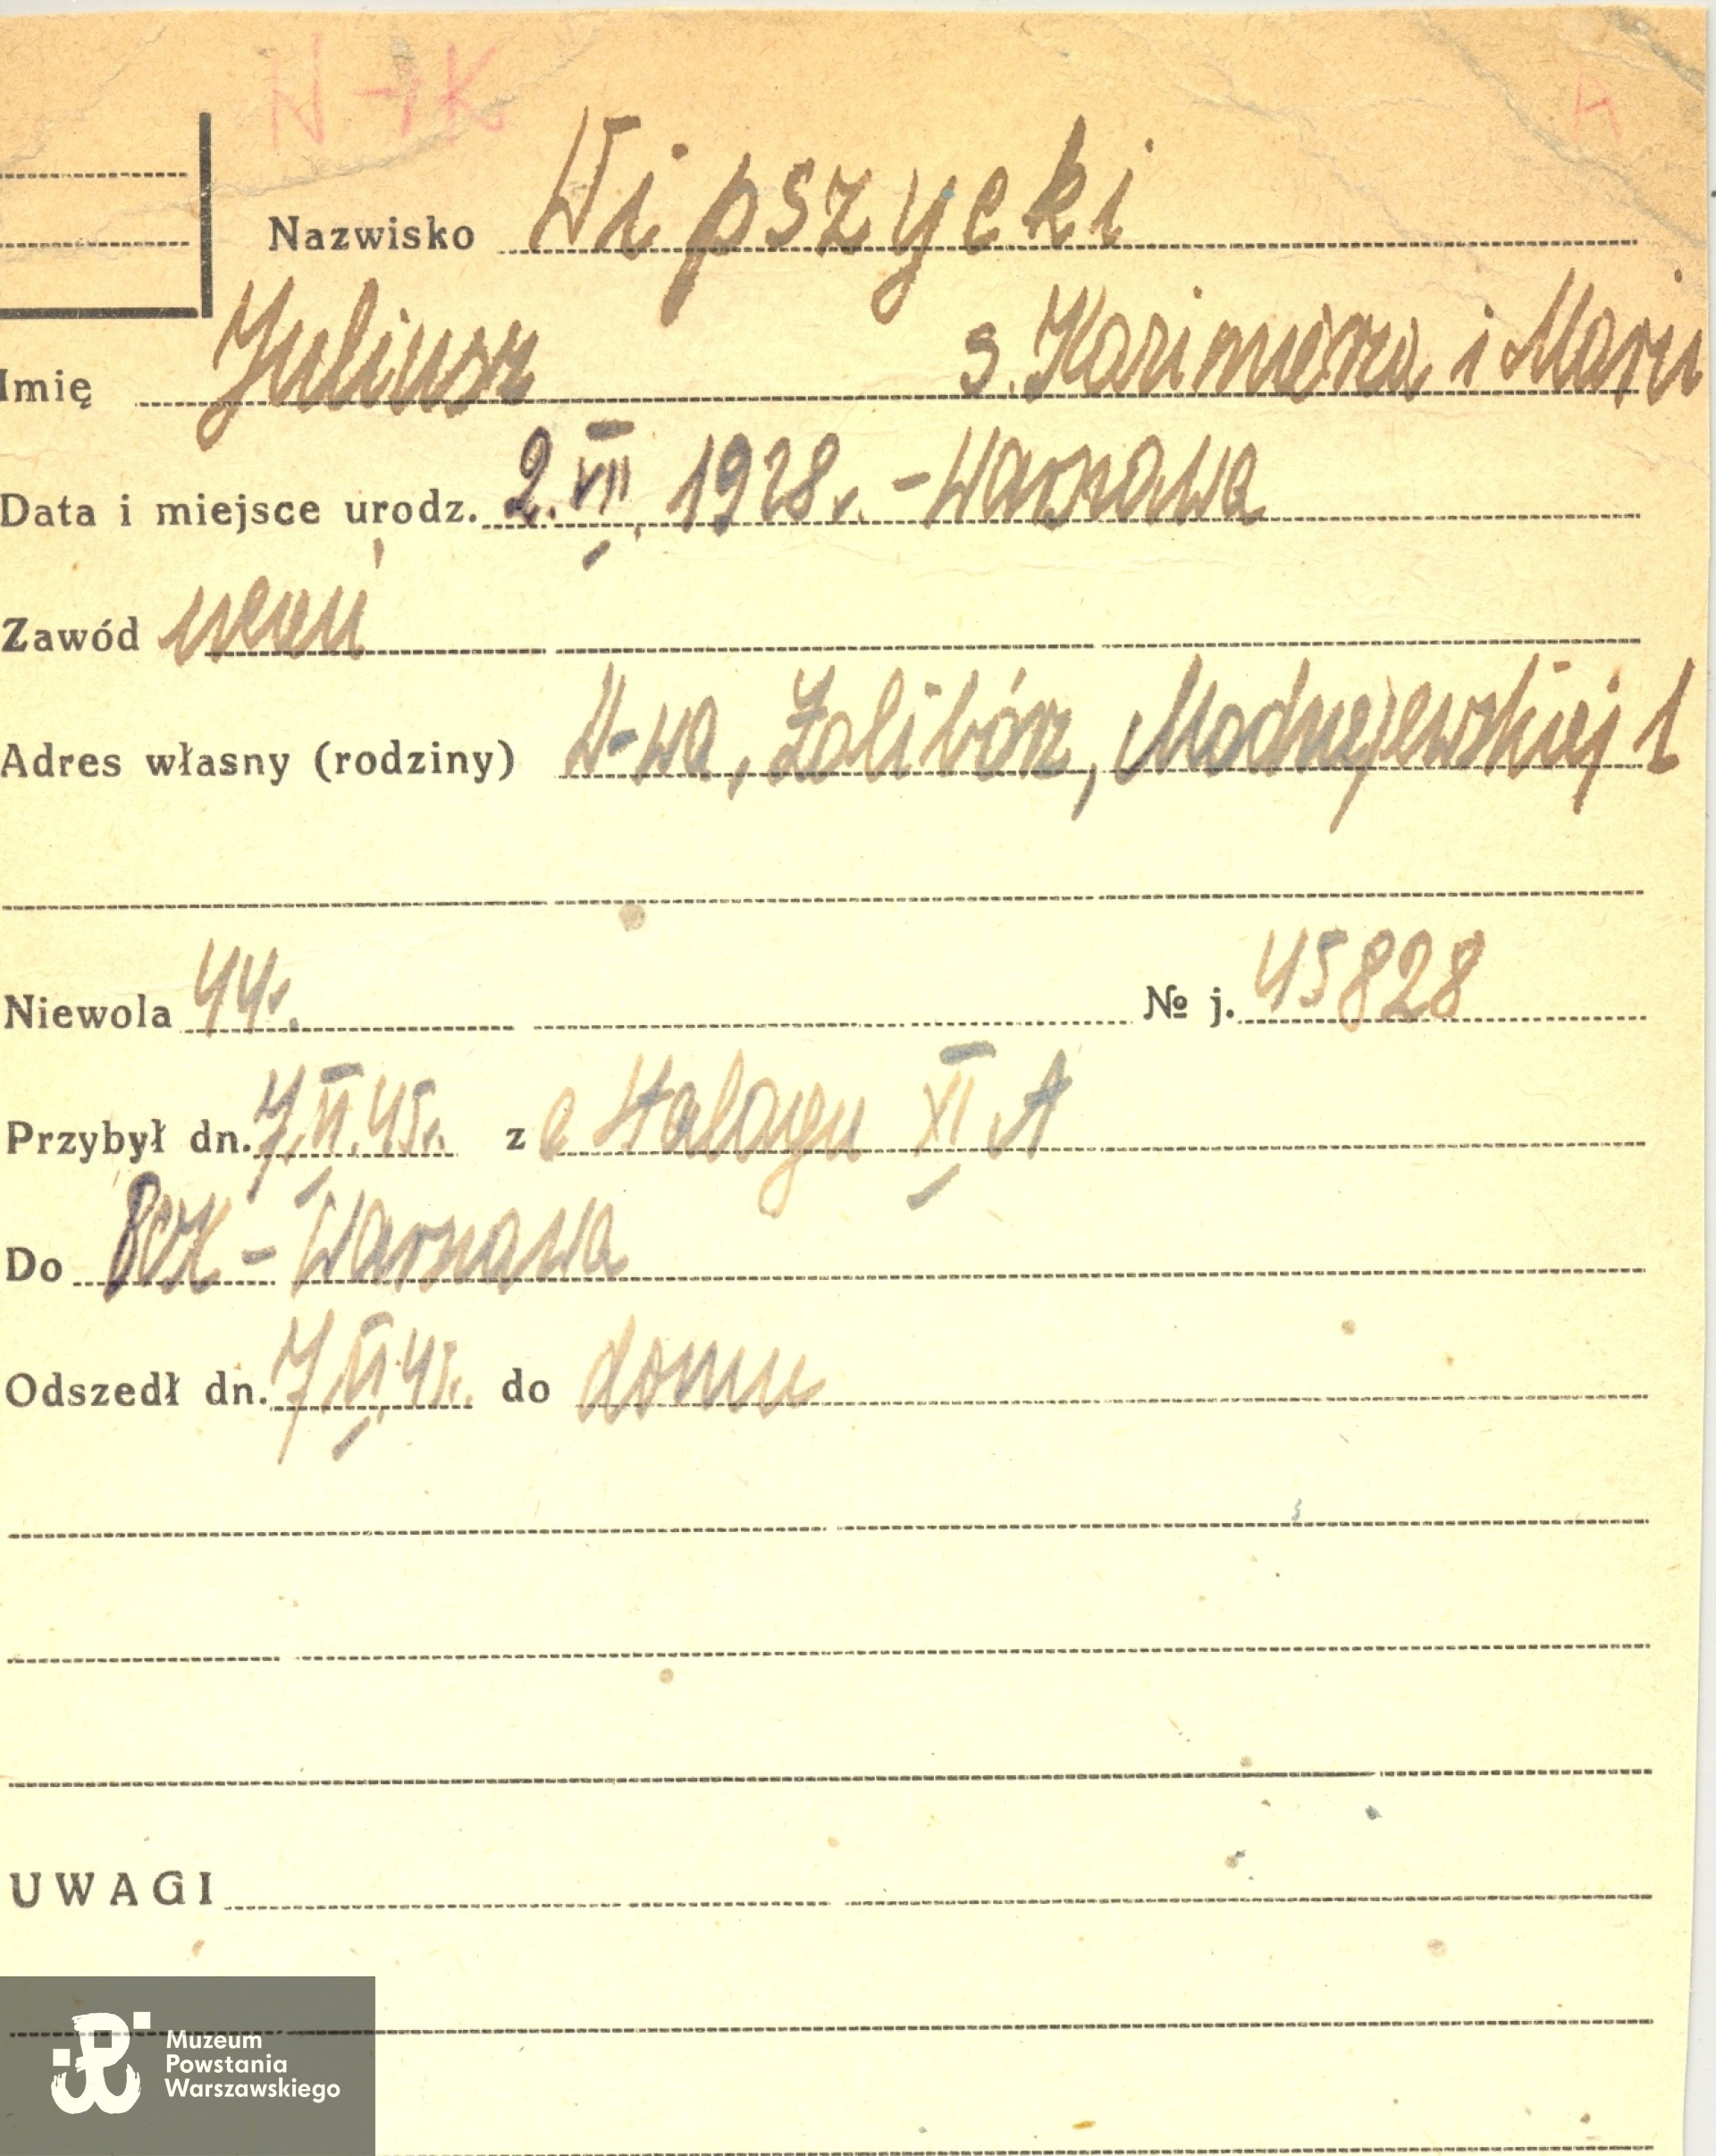 Nazwisko Wipszycki
Imię Juliusz s. Kazimierza i Marii
Data i miejsce urodz. 2. VII. 1928 r. - Warszawa
Zawód uczeń
Adres własny (rodziny) W-wa, Żolibórz, Modrzejewskiej 1
Niewola 44 r. № j. 45828
Przybył dn. 7.VI.45 r. z Stalagu XI A
Do PCK - Warszawa
Odszedł dn. 7.VI.45 r. do domu
UWAGI
Muzeum
Powstania
Warszawskiego